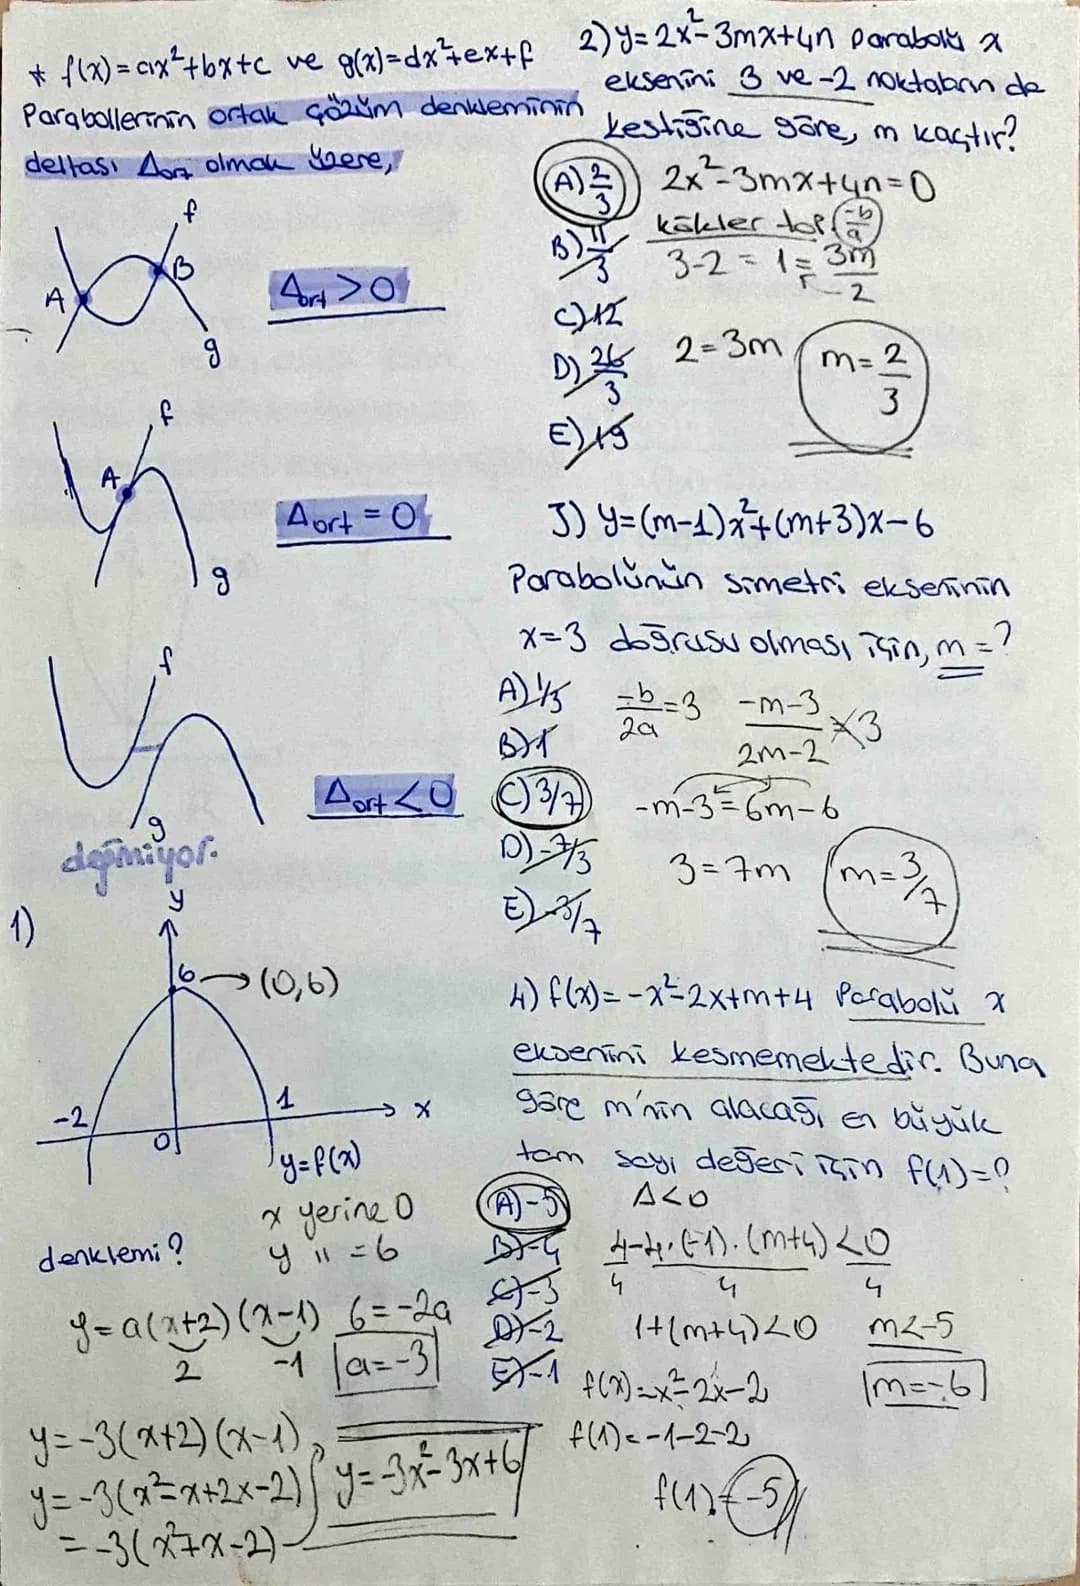 * f(x)=ax²+bx+c ve g(x)=dx²+ex+f
Parabollerinin ortak çözüm denkleminin
deltası Δort olmak üzere,
f
A
B
g
Δort >0
f
A
g
Δort =0
f
g
değmiyor.
Δort <0
1)
y
6 → (0,6)
-2
1
x
0
y=f(x)
x yerine 0
denklemi?
y " =6
y=a(x+2)(x-1) 6=-2a
2 -1 a=-3
y=-3(x+2)(x-1)
y=-3(x²-x+2x-2)
=-3(x²+x-2)
y=-3x²-3x+6
2) y=2x²-3mx+4n parabolü x
eksenini 3 ve -2 noktalarında
kestiğine göre, m kaçtır?
A) 2/3 2x²-3mx+4n=0
B) 11/3 kökler top (-b/a)
3-2 = 1 = 3m/2
C) 12
D) 26/3 2=3m m=2/3
E) 19
3) y=(m-1)x²+(m+3)x-6
Parabolünün simetri ekseninin
x=3 doğrusu olması için, m=?
A) 1/3 -b/2a=3 -m-3/2m-2 3
B) 1
C) 3/7 -m-3=6m-6
D) -7/3 3=7m m=3/7
E) -3/7
4) f(x)=-x²-2x+m+4 Parabolü x
eksenini kesmemektedir. Buna
göre m'nin alacağı en büyük
tam sayı değeri için f(1)=?
A) -5 Δ<0
B) -4 4-4.(-1).(m+4)<0
4 4 4
C) -3
D) -2 1+(m+4)<0 m<-5
E) -1 f(x)=-x²-2x-2 m=-6
f(1)=-1-2-2
f(1)=-5